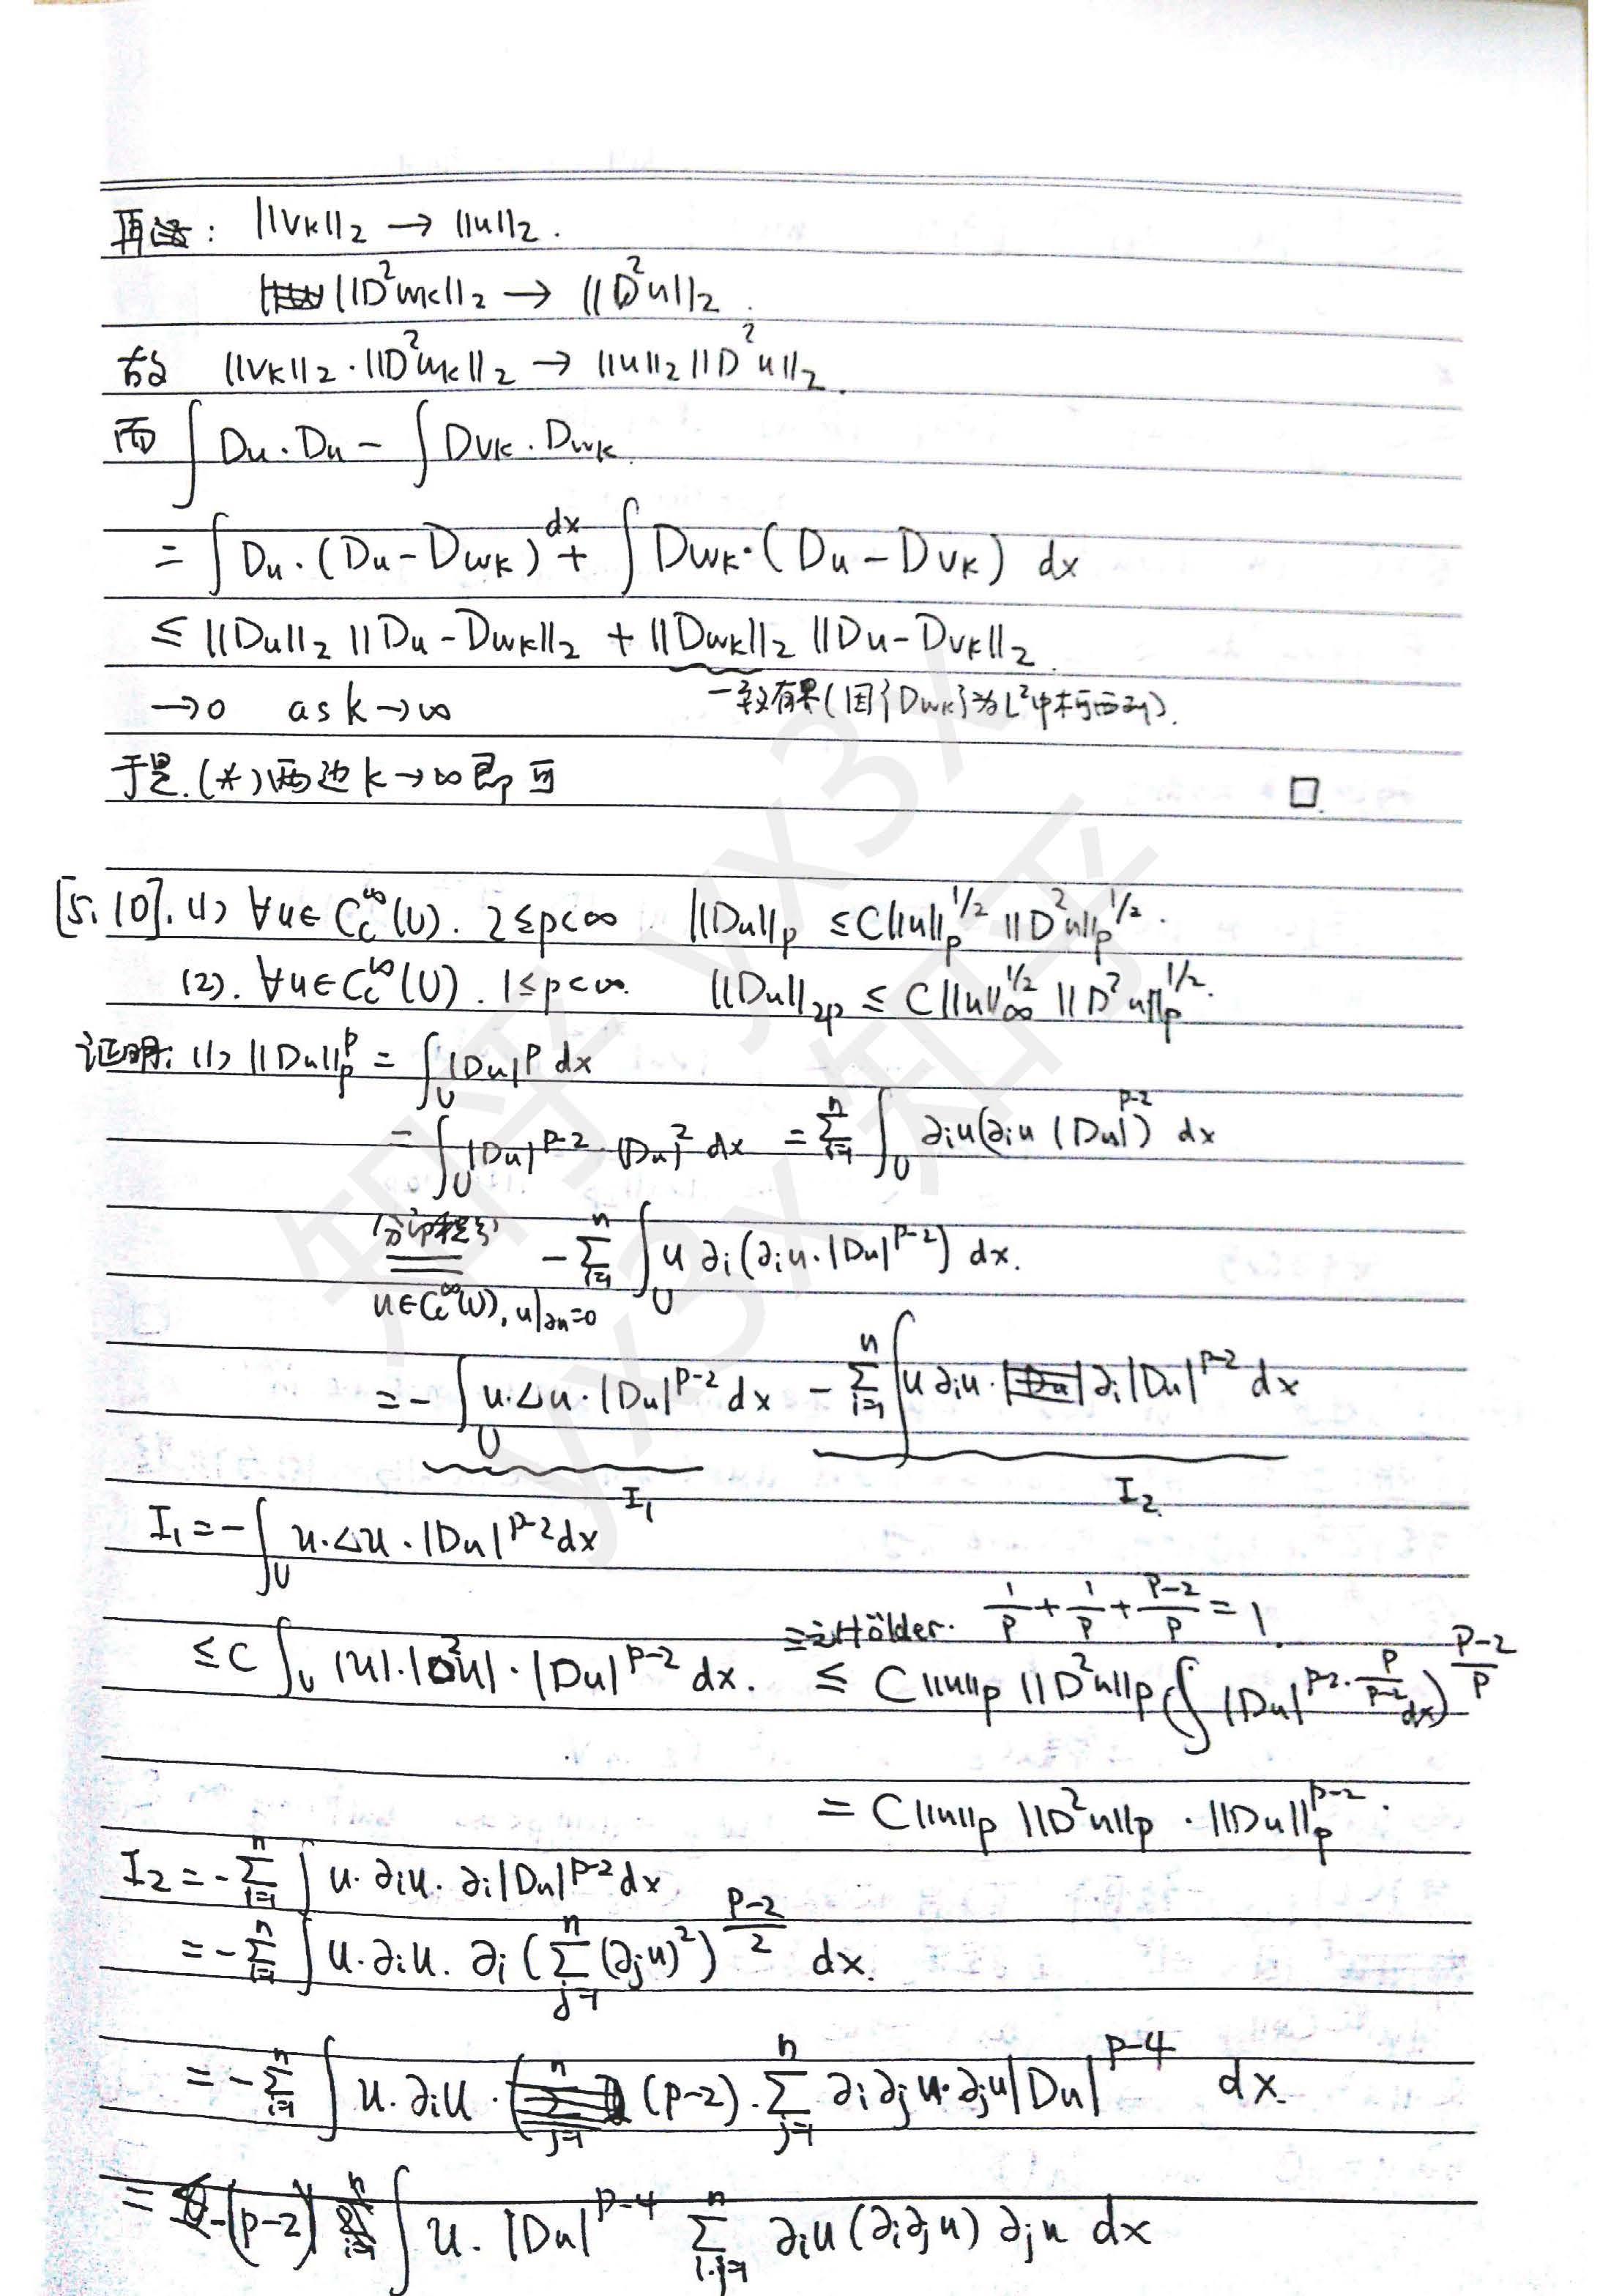 再证: ||v_k||_2 → ||u||_2.
||D^2 w_k||_2 → ||D^2 u||_2.
故 ||v_k||_2 · ||D^2 w_k||_2 → ||u||_2 ||D^2 u||_2.
而 ∫ Du · Du − ∫ Dv_k · Dw_k
= ∫ Du · (Du − Dw_k) dx + ∫ Dw_k · (Du − Dv_k) dx
≤ ||Du||_2 ||Du − Dw_k||_2 + ||Dw_k||_2 ||Du − Dv_k||_2.
→ 0 as k → ∞ 一致有界(因{Dw_k}为L^2中柯西列).
于是.(*)两边 k → ∞ 即可 □.
[5.10]. (1) ∀u ∈ C_c^∞(U). 2 ≤ p < ∞ ||Du||_p ≤ C||u||_p^{1/2} ||D^2 u||_p^{1/2}.
(2). ∀u ∈ C_c^∞(U). 1 ≤ p < ∞. ||Du||_{2p} ≤ C||u||_∞^{1/2} ||D^2 u||_p^{1/2}.
证明: (1) ||Du||_p^p = ∫_U |Du|^p dx
= ∫_U |Du|^{p-2} · |Du|^2 dx = Σ_{i=1}^n ∫_U ∂_i u (∂_i u |Du|^{p-2}) dx
分部积分 = − Σ_{i=1}^n ∫_U u ∂_i (∂_i u · |Du|^{p-2}) dx.
u ∈ C_c^∞(U), u|_{∂u} = 0
= − ∫_U u · Δu · |Du|^{p-2} dx − Σ_{i=1}^n ∫ u ∂_i u · ∂_i |Du|^{p-2} dx
I_1 I_2
I_1 = − ∫_U u · Δu · |Du|^{p-2} dx
三元Hölder. 1/p + 1/p + (p-2)/p = 1.
≤ C ∫_U |u| · |D^2 u| · |Du|^{p-2} dx. ≤ C ||u||_p ||D^2 u||_p (∫ |Du|^{p-2 · p/(p-2)} dx)^{(p-2)/p}
= C ||u||_p ||D^2 u||_p · ||Du||_p^{p-2}.
I_2 = − Σ_{i=1}^n ∫ u · ∂_i u · ∂_i |Du|^{p-2} dx
= − Σ_{i=1}^n ∫ u · ∂_i u · ∂_i (Σ_{j=1}^n (∂_j u)^2)^{(p-2)/2} dx.
= − Σ_{i=1}^n ∫ u · ∂_i u · (p-2) · Σ_{j=1}^n ∂_i ∂_j u · ∂_j u |Du|^{p-4} dx.
= −(p-2) ∫ u · |Du|^{p-4} Σ_{i,j=1}^n ∂_i u (∂_i ∂_j u) ∂_j u dx
知乎 yx3x
yx3x 知乎